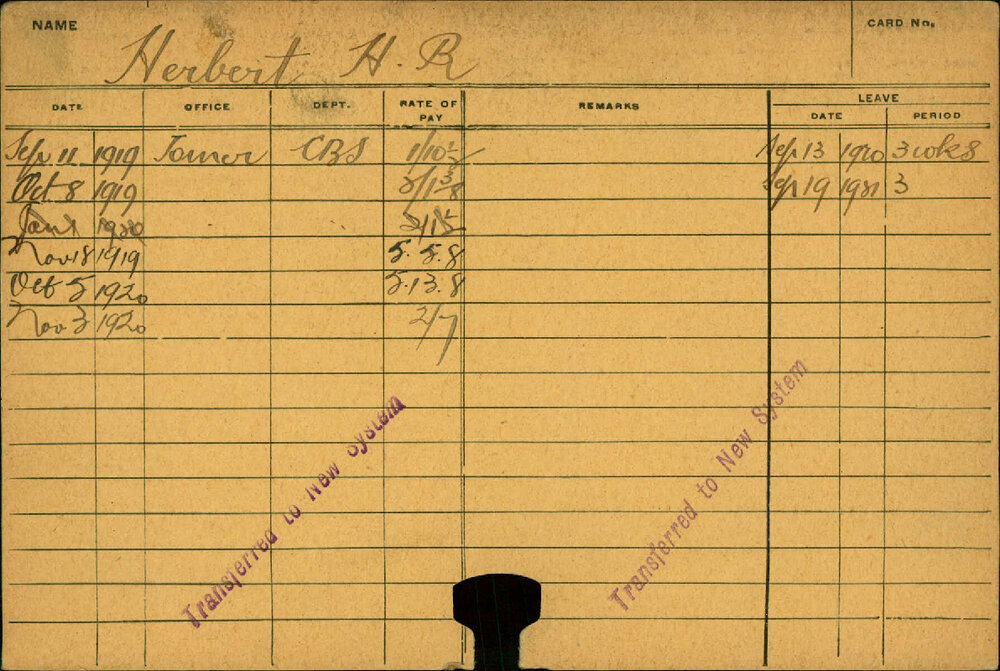 NAME
CARD No.
Herbert H. R
LEAVE
DATE OFFICE DEPT. RATE OF PAY REMARKS DATE PERIOD
Sep. 11 1919 Joiner CBS 1/10½ Sep 13 1920 3 wks
Oct 8 1919 2/1⅜ Sep 19 1921 3
Jan 1 1920
Nov 18 1919 5. 5. 8
Oct 5 1920 5. 13. 8
Nov 3 1920 2/7
Transferred to New System
Transferred to New System